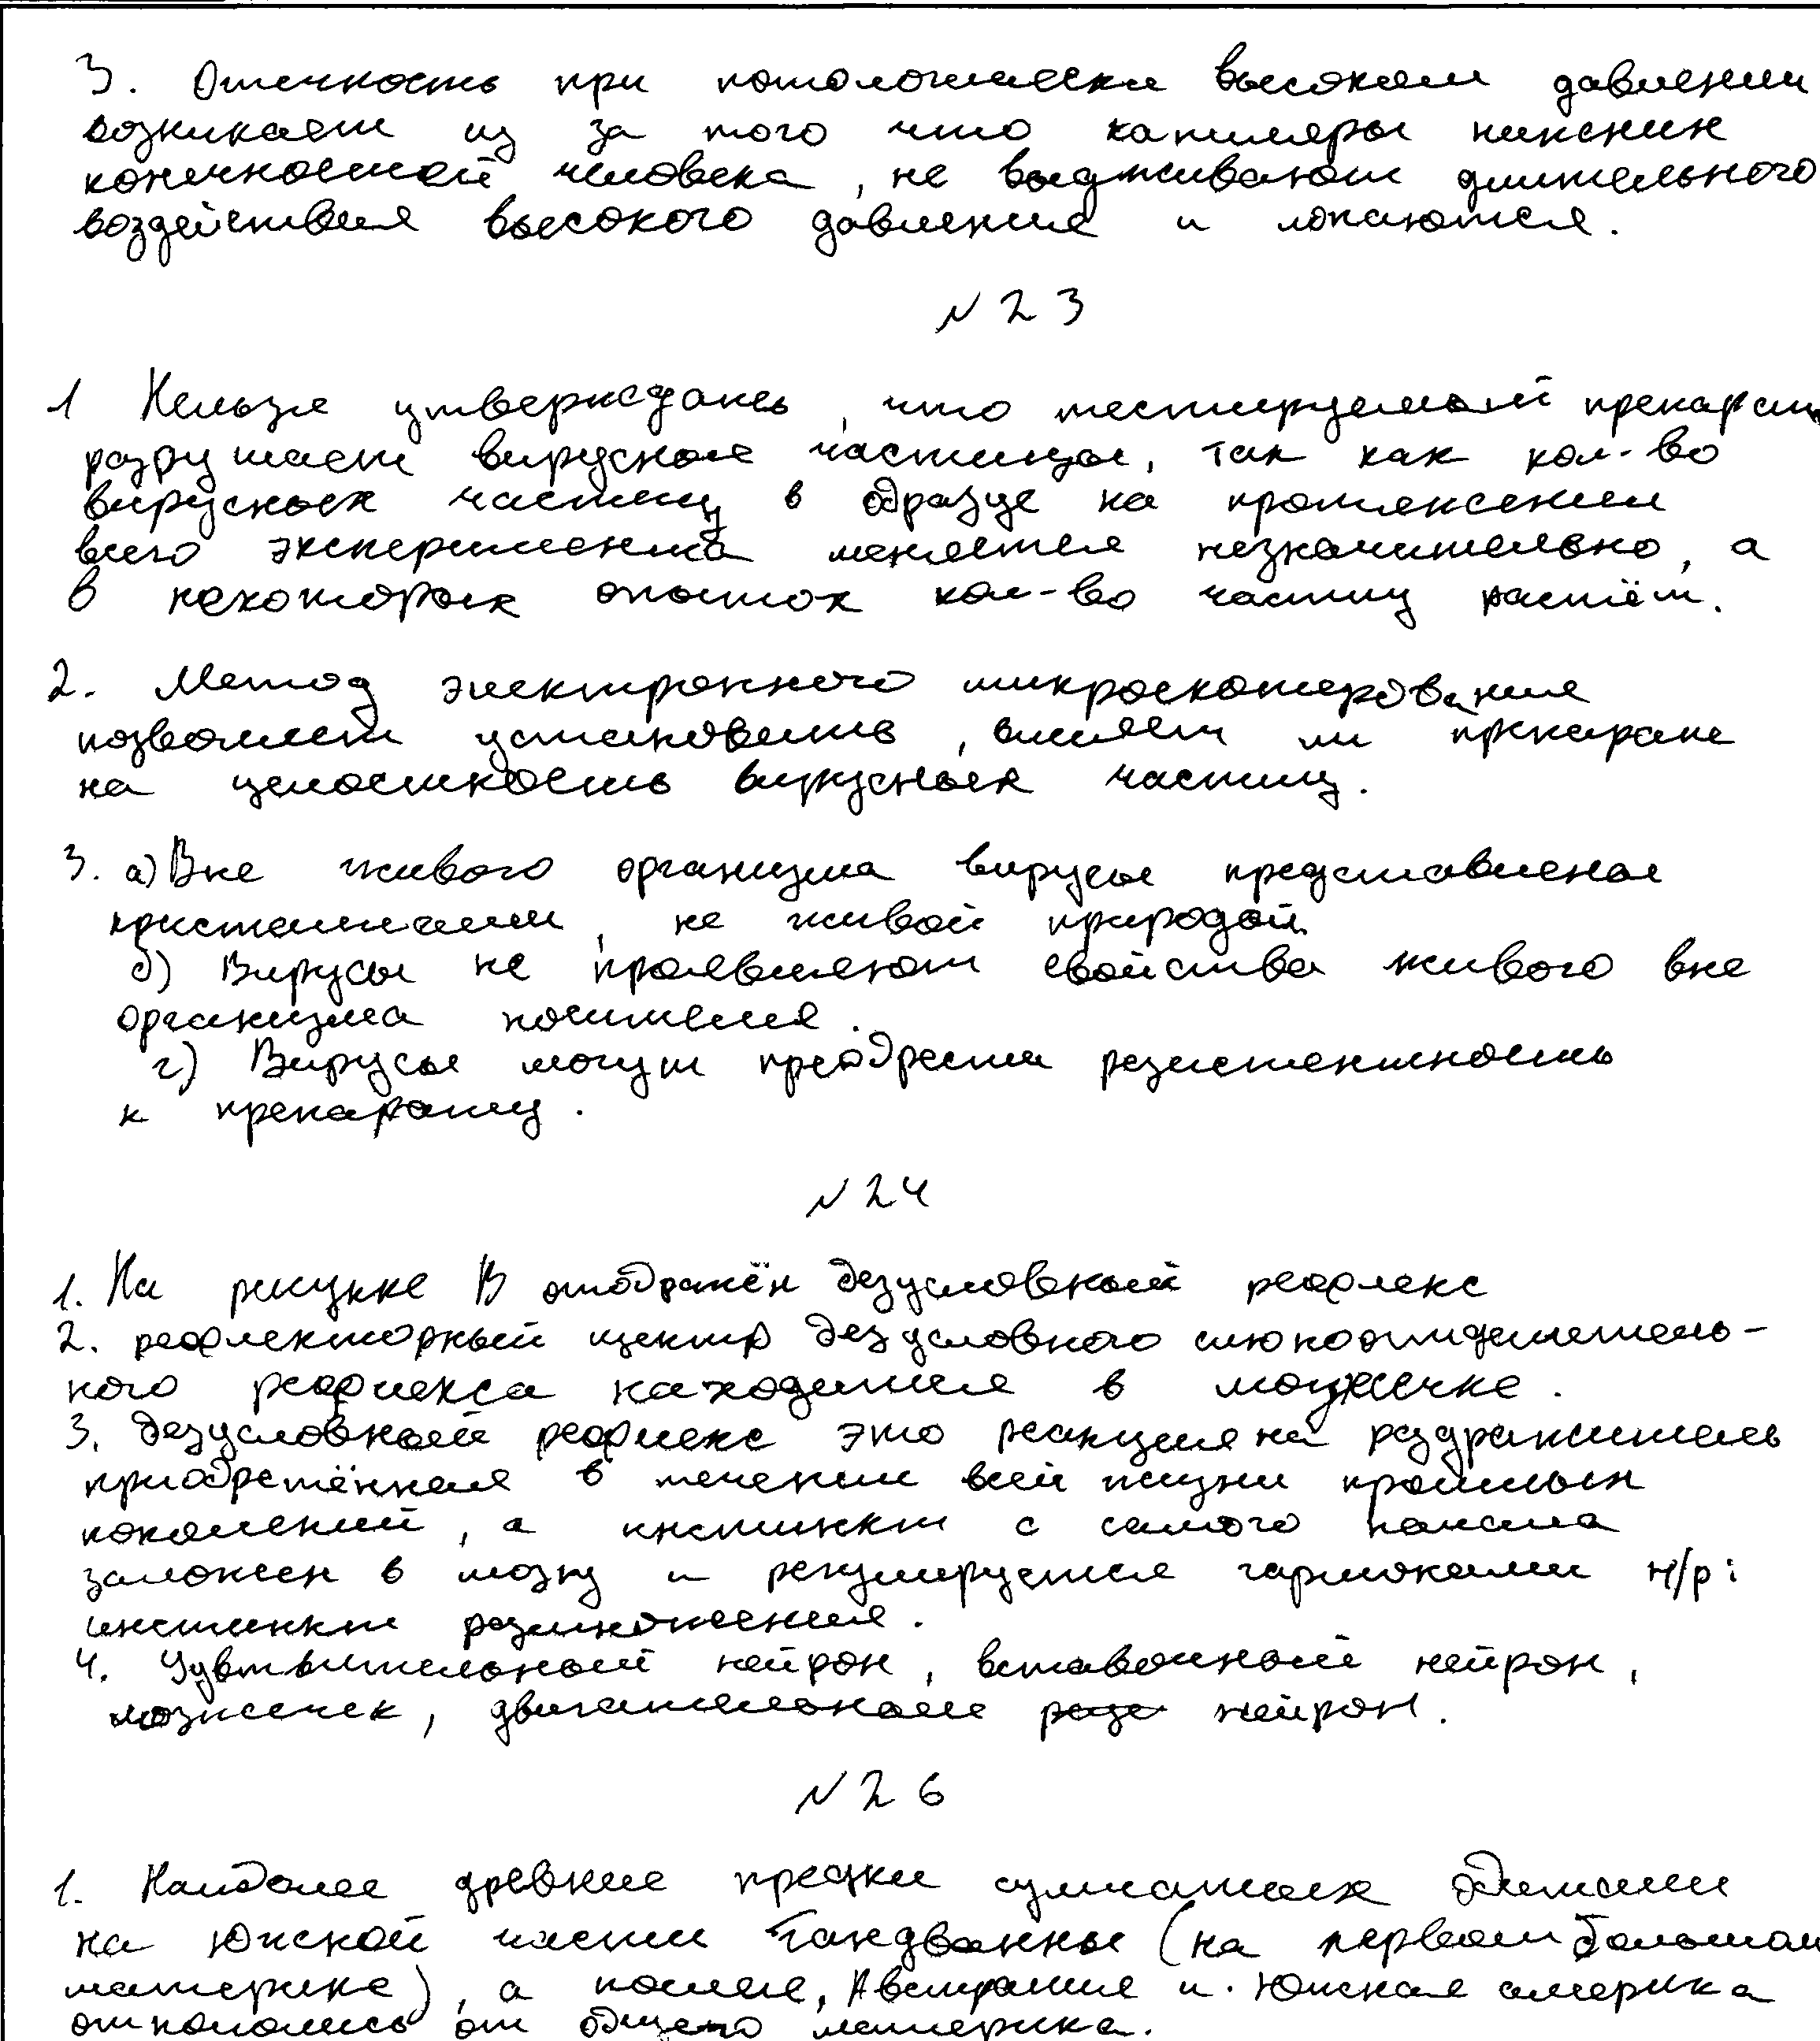 3. Отечность при потологически высоком давлении
возникает из за того что капиляры нижних
конечностей человека, не выдживают длительного
воздействия высокого давления и лопаются.
№23
1 Нельзя утверждать, что тестируемый препарат
разрушает вирусные частицы, так как кол-во
вирусных частиц в образце на протяжении
всего эксперимента меняется незначительно, а
в некоторых опытах кол-во частиц растёт.
2. Метод электронного микроскопирования
позволяет установить, влияет ли препарат
на целостность вирусных частиц.
3. а) Вне живого организма вирусы представлены
кристаллами, не живой природой
б) Вирусы не проявляют свойства живого вне
организма носителя.
г) Вирусы могут преобрести резистентность
к препарату.
№24
1. На рисунке В отображён безусловный рефлекс
2. рефлекторный центр безусловного слюноотделитель-
ного рефлекса находится в мозжечке.
3. безусловный рефлекс это реакция на раздражитель
приобретённая в течении всей жизни прошлых
поколений, а инстинкт с самого начала
заложен в мозгу и регулируется гармонами н/р:
инстинкт размножения.
4. Чувтвительный нейрон, вставочный нейрон,
мозжечек, двигательные нейрон.
№26
1. Наиболее древние предки сумчатых обитали
на Южной части Гандванны (на первом большом
материке), а после, Австралия и Южная америка
откололись от общего материка.